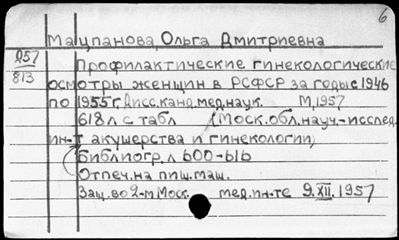 6
Мацпанова, Ольга Дмитриевна
Д57
813
Профилактические гинекологические
осмотры женщин в РСФСР за годы с 1946
по 1955 г. Дисс. канд. мед. наук. М, 1957
618 л с табл (Моск. обл. науч.-исслед.
ин-т акушерства и гинекологии)
Библиогр. л 600-616
Отпеч. на пиш. маш.
Защ. во 2-м Моск. мед. ин-те 9.XII.1957